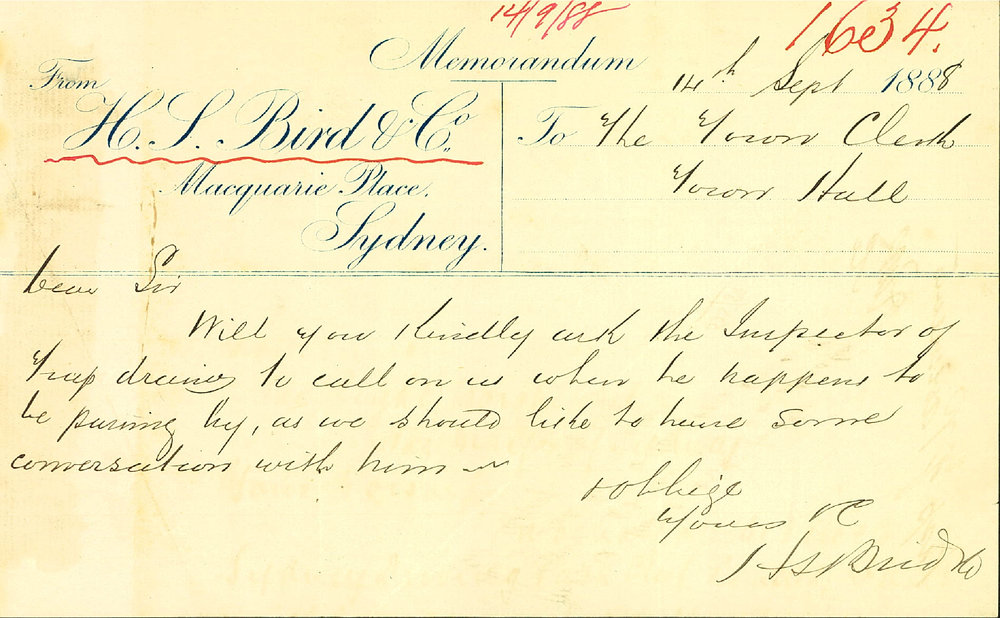 14/9/88
1634.
Memorandum
14th Sept 1888
From
H. S. Bird & Co.
Macquarie Place.
Sydney.
To The Town Clerk
Town Hall
Dear Sir
Will you kindly ask the Inspector of
trap drains to call on us when he happens to
be passing by, as we should like to have some
conversation with him
& oblige
Yours &c
H S Bird & Co